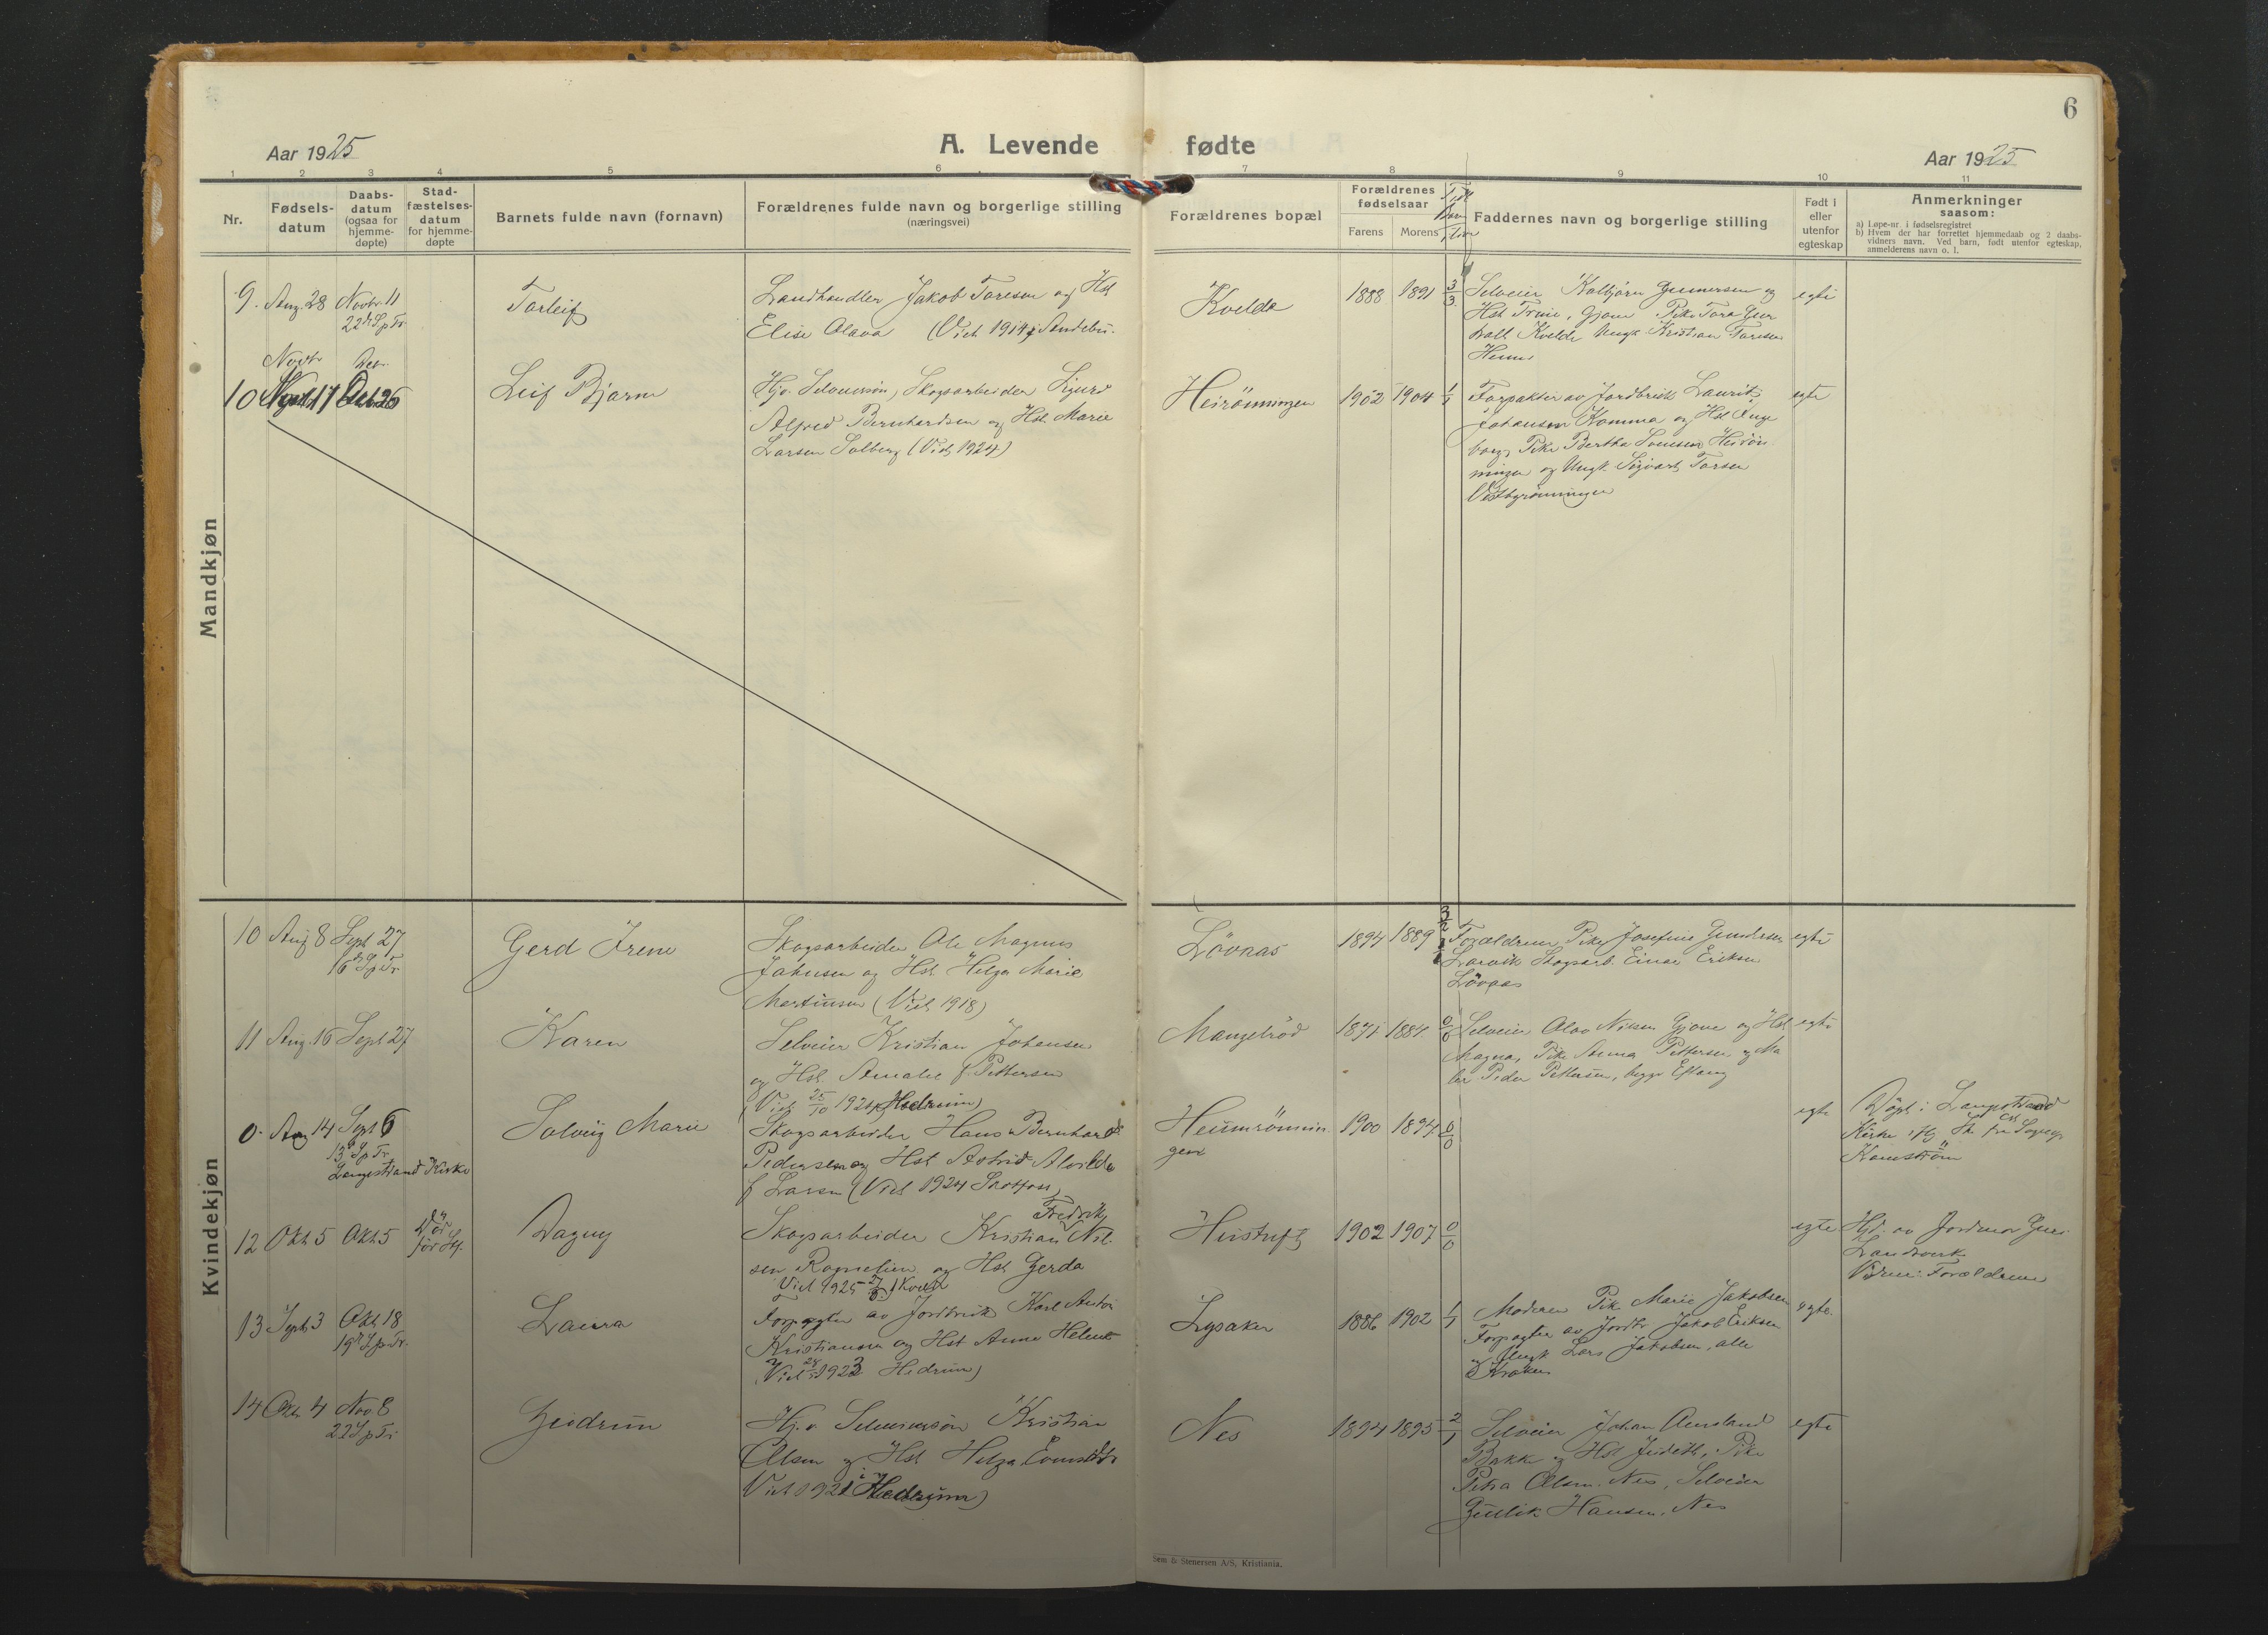 6
Aar 1925
A. Levende fødte
Aar 1925
1 2 3 4 5 6 7 8 9 10 11
Nr.
Fødsels-
datum
Daabs-
datum
(ogsaa for
hjemme-
døpte)
Stad-
fæstelses-
datum
for hjemme-
døpte
Barnets fulde navn (fornavn)
Forældrenes fulde navn og borgerlige stilling
(næringsvei)
Forældrenes bopæl
Forældrenes
fødselsaar
Farens Morens
Faddernes navn og borgerlige stilling
Født i
eller
utenfor
egteskap
Anmerkninger
saasom:
a) Løpe-nr. i fødselsregistret
b) Hvem der har forrettet hjemmedaab og 2 daabs-
vidners navn. Ved barn, født utenfor egteskap,
anmelderens navn o. l.
Mandkjøn
9. Aug. 28 Novbr. 11
22 S p Tr.
Torleif
Landhandler Jakob Toresen og Hst
Elise Olava (Viet 1914 i Andebu.
Kvelde
1888 1891 3/3
Selveier Kolbjørn Gunnersen og
Hst Trine, Gjone Pike Tora
Kvelde Ungk. Kristian Toresen
egte
Novbr Des.
10 17 26
Leif Bjarne
Hjv. Selveiersøn, Skogsarbeider Sigurd
Alfred Bernhardsen og Hst. Marie
Larsen Solberg (Viet 1924)
Heirønningen
1902 1904 1/1
Forpakter av Jordbruk Laurits
Johansen Komma og Hst Inge
borg, Pike Bertha Svensen Heirøn
ningen og Ungk. Sigvart Torsen
Vestbyrønningen
egte
Kvindekjøn
10 Aug 8 Sept 27
16 S p Tr.
Gerd Irene
Skogsarbeider Ole Magnus
Johnsen og Hst Helga Marie
Martinsen (Viet 1918)
Løvnas
1894 1889
Forældrene Pike Josefine Gundersen
Larvik Skogsarb. Einar Eriksen
Løvnas
egte
11 Aug. 16 Sept 27
Karen
Selveier Kristian Johansen
og Hst. Amalie f. Pettersen
(Viet 25/10 1924 Hedrum)
Mangelrød
1871 1884 0/0
Selveier Olav Nilsen Gjone og Hst
Magna, Pike Anna Pettersen og Ma
ler Peder Pettersen, begge Eftang
egte
0. Aug 14 Sept 6
13 S p Tr.
Langestrand Kirke
Solveig Marie
Skogsarbeider Hans Bernhard
Pedersen og Hst Astrid Alvilde
f Larsen (Viet 1924
Heumrønnin
gen
1900 1894 0/0
egte
Døpt i Langestrand
Kirke
12 Okt 5 Okt 5
Død
før Stf.
Dagny
Skogsarbeider Kristian Fredrik Nil
sen og Hst Gerda
Viet 1925
1902 1907 0/0
egte
Hjd. av Jordmor
Landsverk
Vidner: Forældrene
13 Sept 3 Okt 18
19 S p Tr.
Laura
Forpagter av Jordbruk Karl Anton
Kristiansen og Hst Anna Helene
(Viet 1923 Hedrum)
Lysaker
1886 1902 1/1
Moderen Pike Marie Jakobsen
Forpagter av Jordbr Jakob Eriksen
og Ungk Lars Jakobsen, alle
egte.
14 Okt. 4 Nov 8
22 S p Tr
Gudrun
Hj.v Selveiersøn Kristian
Olsen og Hst Helga
Viet 1921 i Hedrum)
Nes
1894 1895 2/1
Selveier Johan Amsland
Bakke og Hst Judeth, Pike
Petra Olsen. Nes, Selveier
Gullik Hansen. Nes
egte
Sem & Stenersen A/S, Kristiania.